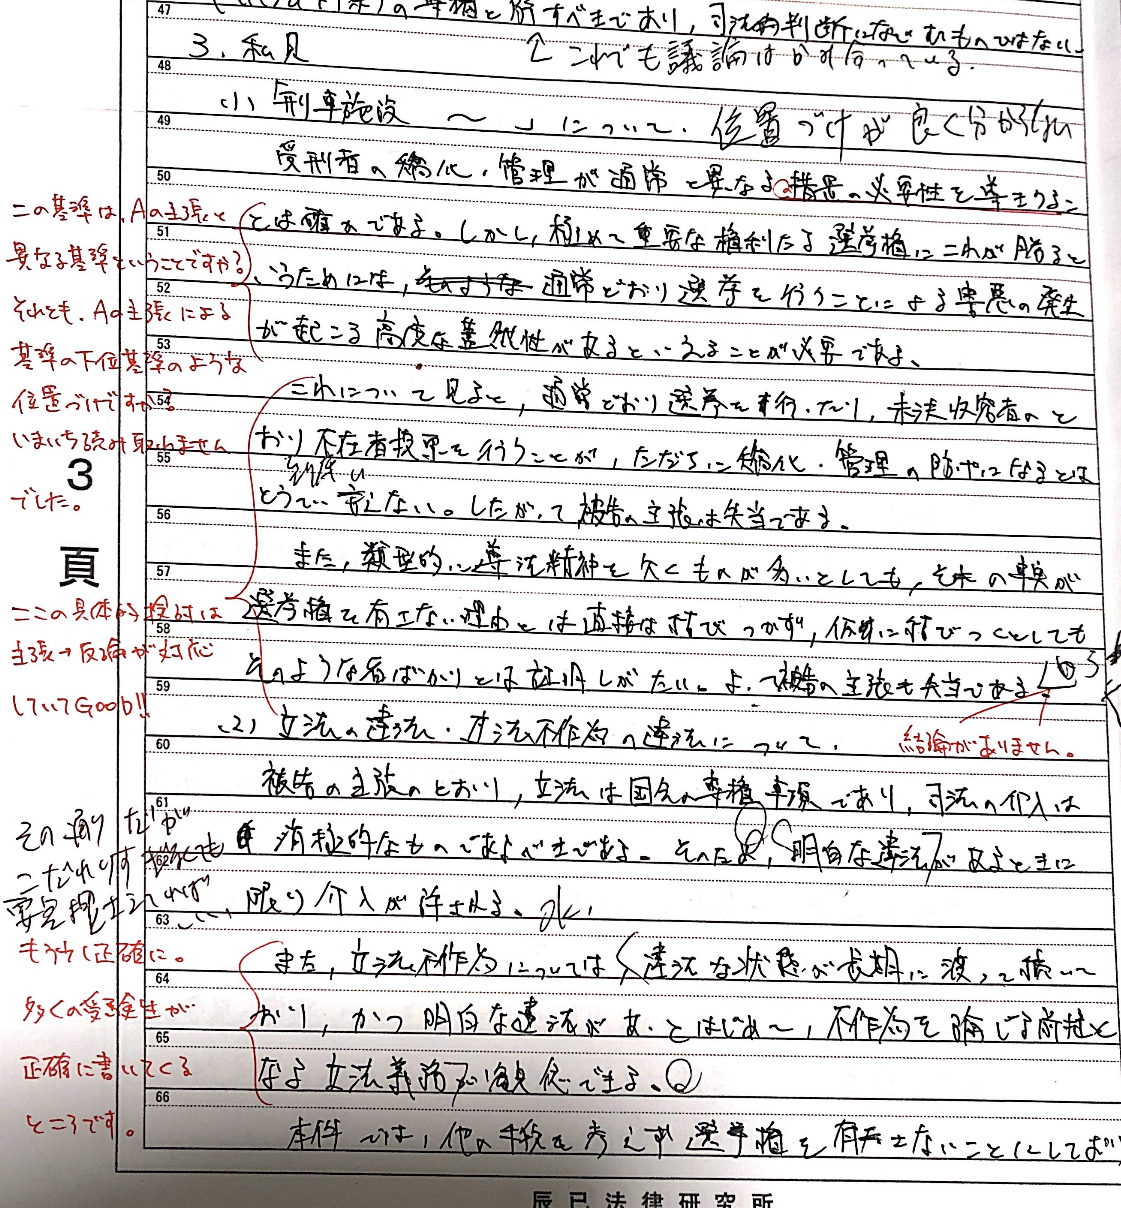 47 の専権と解すべきであり，司法的判断になじむものではない
3．私見 ↑これでも議論はかみ合っている。
48
(1) 「刑事施設 〜 」について． 位置づけが良く分からない
49
受刑者の矯化・管理が通常と異なる措置の必要性を導きうるこ
50
とは確かである。しかし，極めて重要な権利たる選挙権にこれが勝ると
51
いうためには，通常どおり選挙を行うことによる害悪の発生
52
が起こる高度な蓋然性があるといえることが必要である。
53
これについて見ると，通常どおり選挙を行ったり，未決収容者のと
54
おり不在者投票を行うことが，ただちに矯化・管理の防止になるとは
55
とうてい言えない。したがって被告の主張は失当である。
56
また，類型的に遵法精神を欠くものが多いとしても，その事実が
57
選挙権を有さない理由とは直接は結びつかず，仮に結びつくとしても
58
そのような者ばかりとは証明しがたい。よって被告の主張も失当である。
59
(2) 立法の違法・立法不作為の違法について．
60
被告の主張のとおり，立法は国会の専権事項であり，司法の介入は
61
消極的なものであるべきである。そのため，明白な違法があるときに
62
限り介入が許される。
63
また，立法不作為については，違法な状態が長期に渡って続いて
64
おり，かつ明白な違法があってはじめて，不作為を論じる前提と
65
なる立法義務が観念できる。
66
本件では，他の手段を考えず選挙権を有さないことにしており
この基準は、Aの主張と
異なる基準ということですか？
それとも、Aの主張による
基準の下位基準のような
位置づけですか？
いまいち読み取れません
でした。
3
頁
ここの具体的検討は
主張→反論が対応
していてGOOD!!
結論がありません。
その通りだが
こだわりすぎなくても
要件押さえていれば
いい
もう少し正確に。
多くの受験生が
正確に書いてくる
ところです。
辰已法律研究所